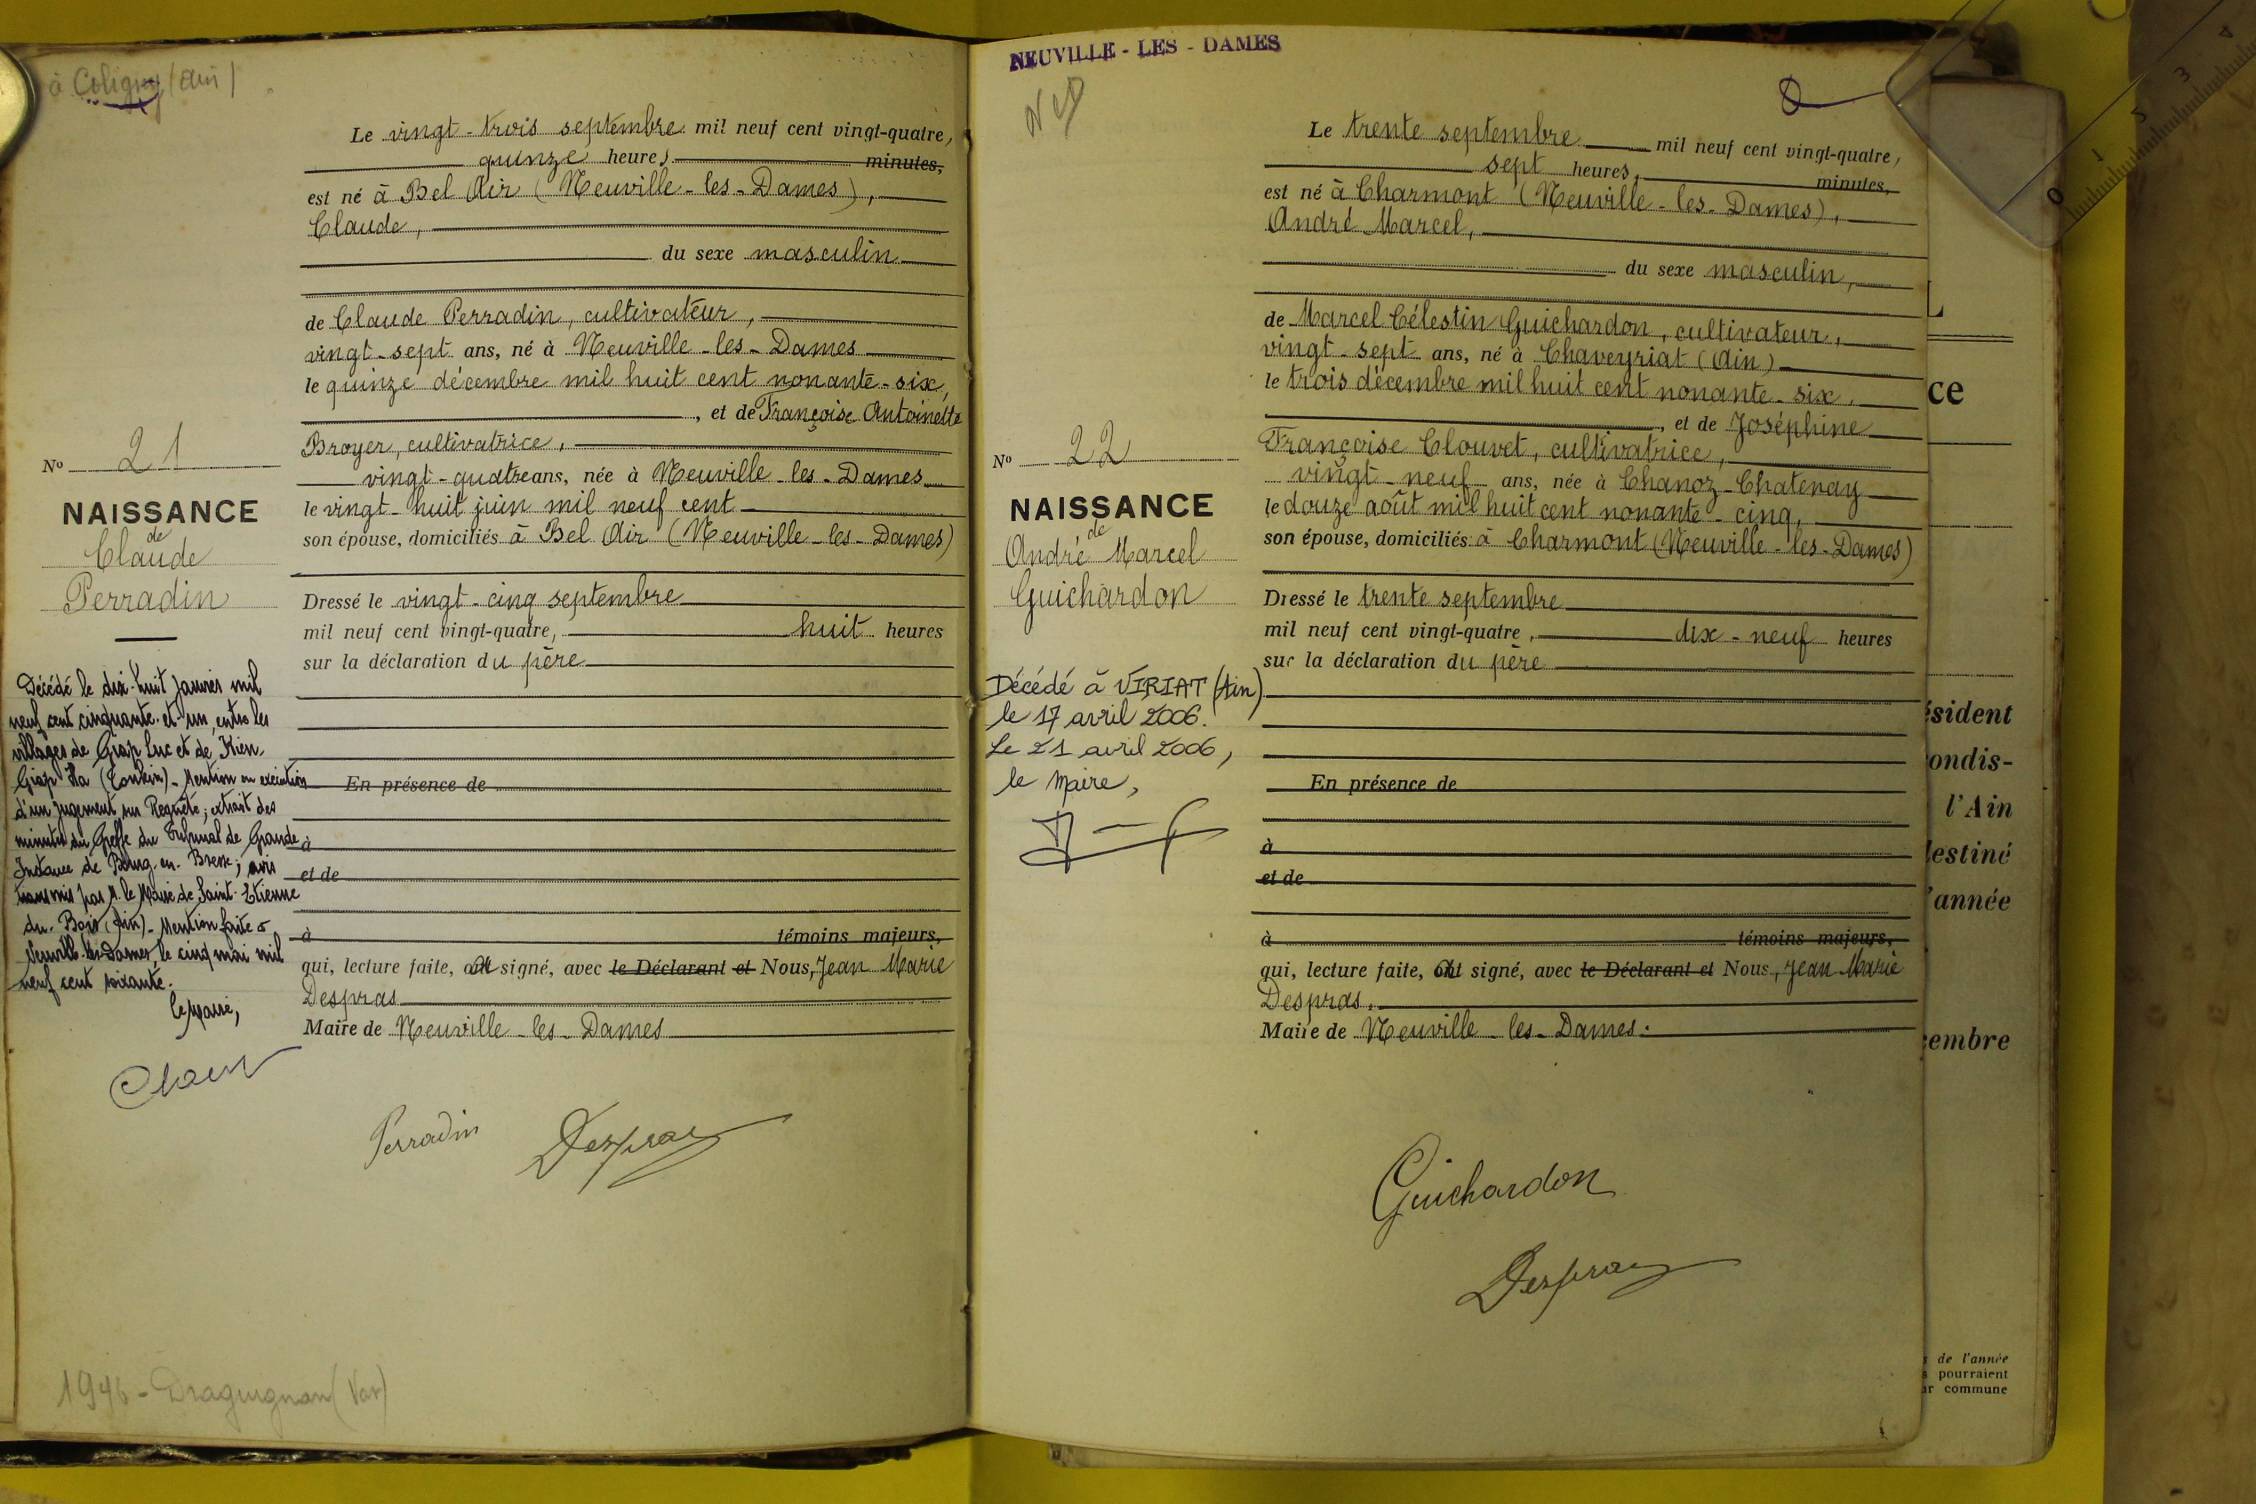 à Coligny (Ain)
Le vingt-trois septembre mil neuf cent vingt-quatre,
quinze heures minutes,
est né à Bel Air (Neuville-les-Dames),
Claude,
du sexe masculin
de Claude Perradin, cultivateur,
vingt-sept ans, né à Neuville-les-Dames
le quinze décembre mil huit cent nonante-six,
, et de Françoise Antoinette
Broyer, cultivatrice,
vingt-quatre ans, née à Neuville-les-Dames
le vingt-huit juin mil neuf cent
son épouse, domiciliés à Bel Air (Neuville-les-Dames)
Dressé le vingt-cinq septembre
mil neuf cent vingt-quatre, huit heures
sur la déclaration du père
En présence de
à
et de
à témoins majeurs,
qui, lecture faite, a signé, avec le Déclarant et Nous, Jean Marie
Despras
Maire de Neuville-les-Dames
Perradin
Despras
No 21
NAISSANCE
de
Claude
Perradin
Décédé le dix-huit janvier mil
neuf cent cinquante-et-un, entre les
villages de Giap Luc et de Kien
Giap Ha (Tonkin)_ Mention en exécution
d'un jugement sur Requête; extrait des
minutes du Greffe du Tribunal de Grande
Instance de Bourg-en-Bresse; avis
transmis par M. le Maire de Saint-Etienne
du-Bois (Ain)_ Mention faite à
Neuville-les-Dames, le cinq mai mil
neuf cent soixante.
le Maire,
1946 - Draguignan (Var)
NEUVILLE - LES - DAMES
Le trente septembre mil neuf cent vingt-quatre,
sept heures, minutes,
est né à Charmont (Neuville-les-Dames),
André Marcel,
du sexe masculin,
de Marcel Célestin Guichardon, cultivateur,
vingt-sept ans, né à Chaveyriat (Ain)
le trois décembre mil huit cent nonante-six,
, et de Joséphine
Françoise Clouvet, cultivatrice,
vingt-neuf ans, née à Chanoz-Chatenay
le douze août mil huit cent nonante-cinq,
son épouse, domiciliés à Charmont (Neuville-les-Dames)
Dressé le trente septembre
mil neuf cent vingt-quatre, dix-neuf heures
sur la déclaration du père
En présence de
à
et de
à témoins majeurs,
qui, lecture faite, a signé, avec le Déclarant et Nous, Jean Marie
Despras,
Maire de Neuville-les-Dames.
Guichardon
Despras
No 22
NAISSANCE
de
André Marcel
Guichardon
Décédé à VIRIAT (Ain)
le 17 avril 2006.
Le 21 avril 2006,
le Maire,
ce
ésident
ondis-
l'Ain
lestiné
'année
cembre
de l'année
s pourraient
ar commune
0 1 2 3 4